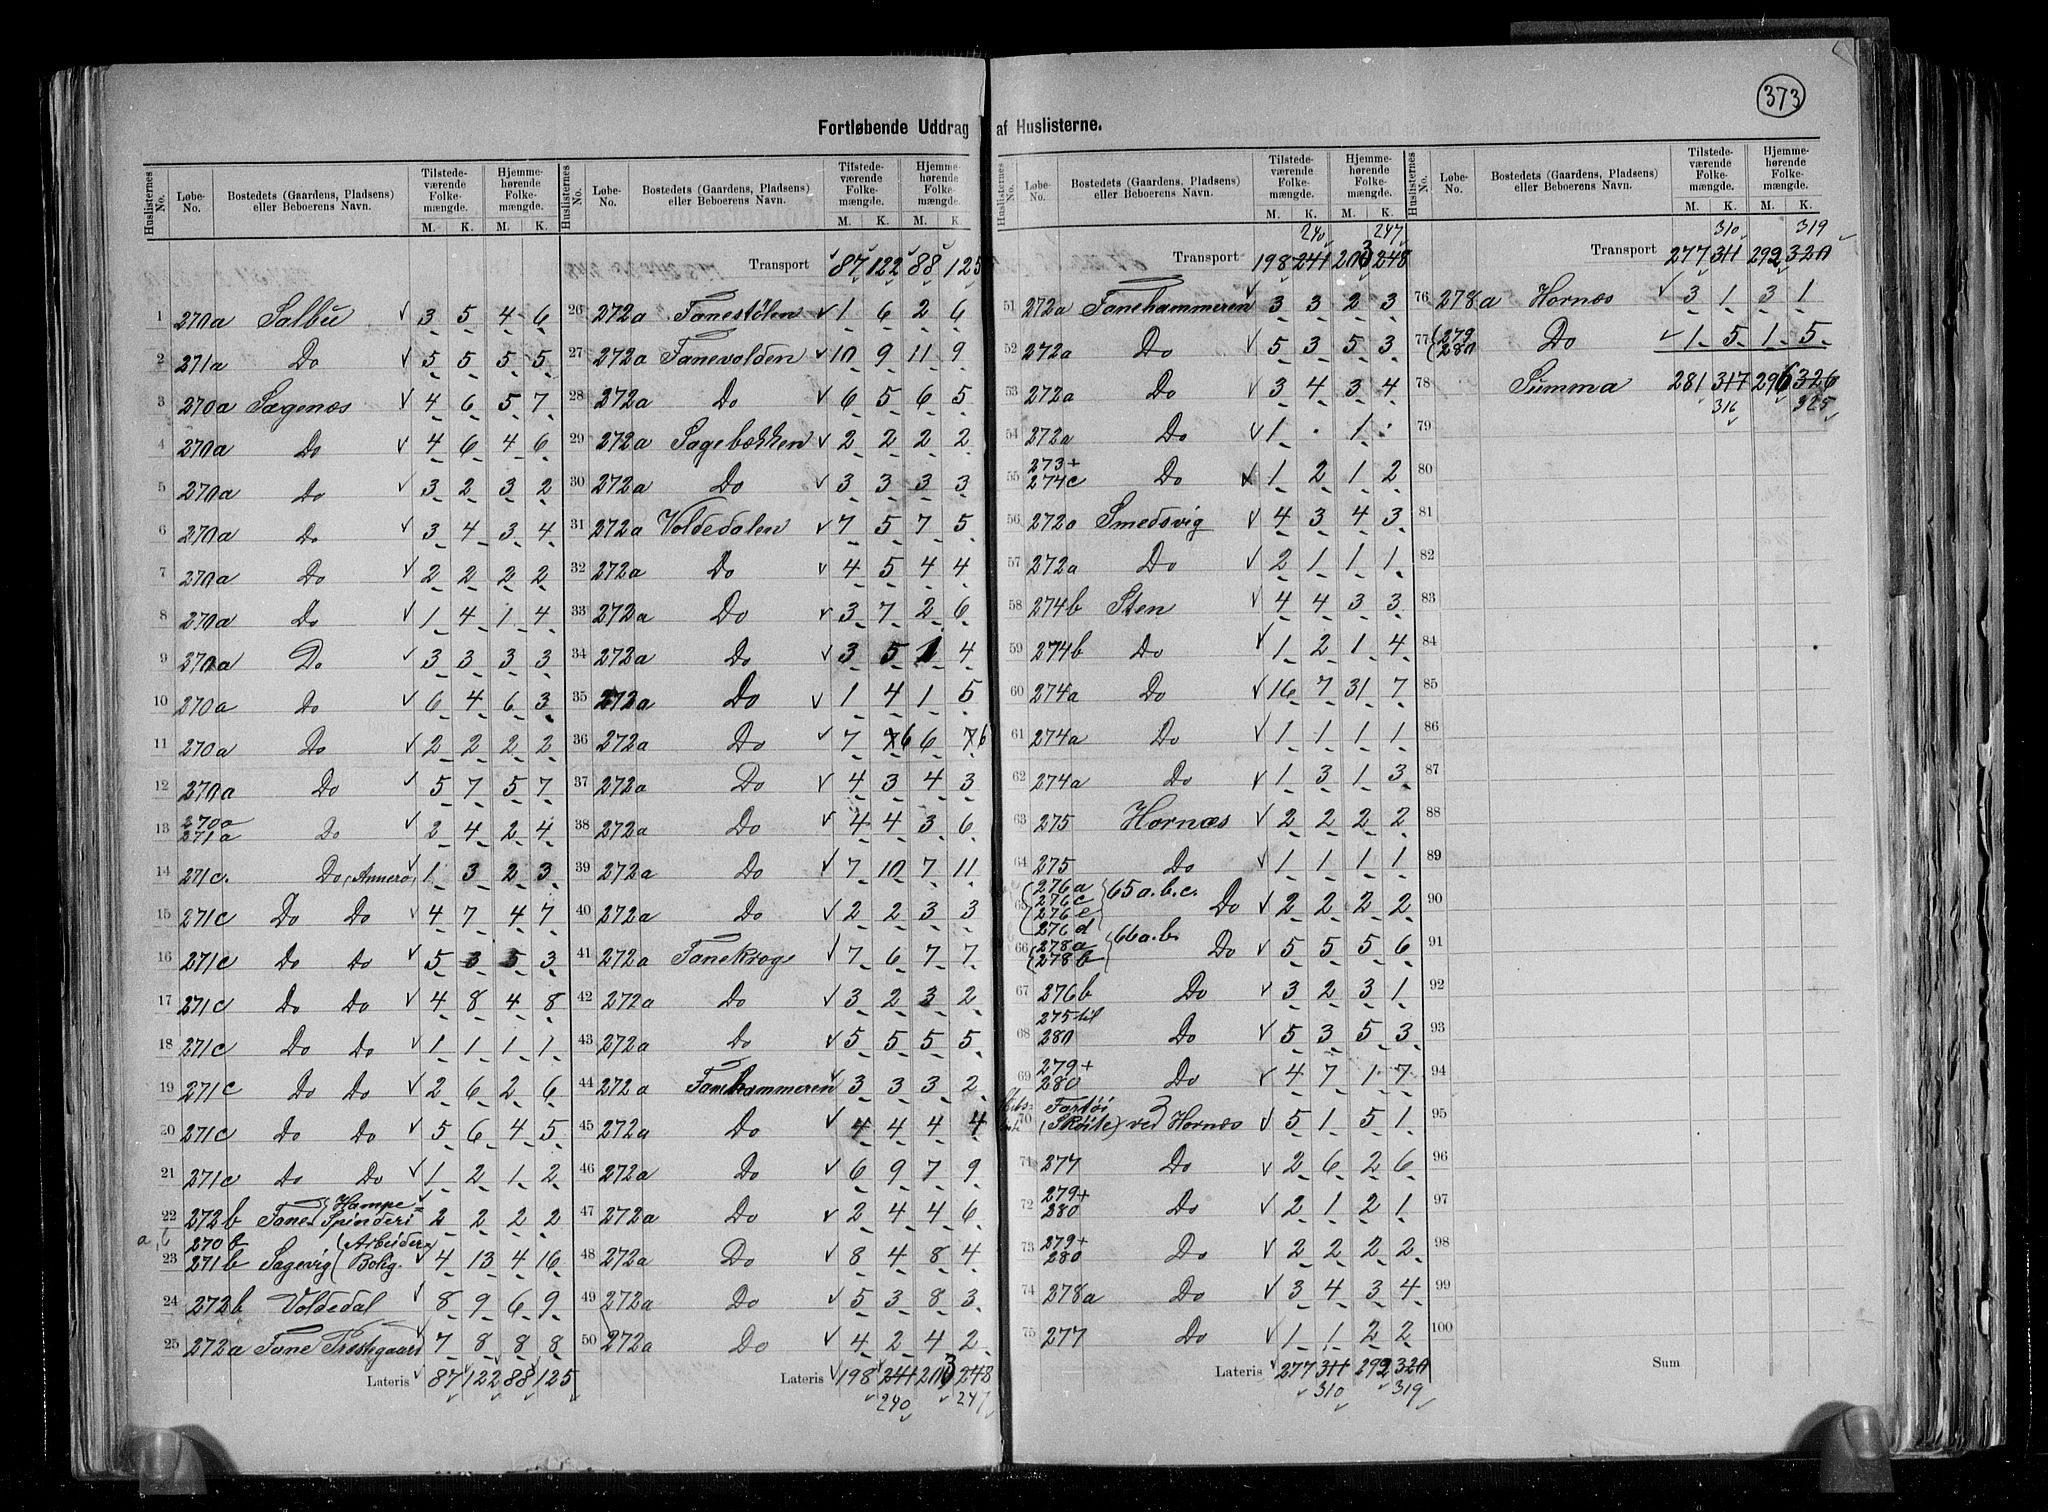 373
Fortløbende Uddrag af Huslisterne.
Huslisternes No. | Løbe-No. | Bostedets (Gaardens, Pladsens) eller Beboerens Navn. | Tilstedeværende Folkemængde. M. K. | Hjemmehørende Folkemængde. M. K.
1 270a Salbu ✓ 3 5 4 6
2 271a Do ✓ 5 5 5 5
3 270a Sagenæs ✓ 4 6 5 7
4 270a Do ✓ 4 6 4 6
5 270a Do ✓ 3 2 3 2
6 270a Do ✓ 3 4 3 4
7 270a Do ✓ 2 2 2 2
8 270a Do ✓ 1 4 1 4
9 270a Do ✓ 3 3 3 3
10 270a Do ✓ 6 4 6 3
11 270a Do ✓ 2 2 2 2
12 270a Do ✓ 5 7 5 7
13 270a 271a Do ✓ 2 4 2 4
14 271c. Do (Annerø) ✓ 1 3 2 3
15 271c Do Do ✓ 4 7 4 7
16 271c Do Do ✓ 5 3 5 3
17 271c Do Do ✓ 4 8 4 8
18 271c Do Do ✓ 1 1 1 1
19 271c Do Do ✓ 2 6 2 6
20 271c Do Do ✓ 5 6 4 5
21 271c Do Do ✓ 1 2 1 2
22 272b Fanes Hampe= Spinderi ✓ 2 2 2 2
23 270b 271b Sagevig (Arbeider= Bolig. ✓ 4 13 4 16
24 272b Voldedal ✓ 8 9 6 9
25 272a Fane Præstegaard ✓ 7 8 8 8
Lateris ✓ 87 122 88 125
Transport 87 122 88 125
26 272a Fanestølen ✓ 1 6 2 6
27 272a Fanevolden ✓ 10 9 11 9
28 272a Do ✓ 6 5 6 5
29 272a Sagebækken ✓ 2 2 2 2
30 272a Do ✓ 3 3 3 3
31 272a Voldedalen ✓ 7 5 7 5
32 272a Do ✓ 4 5 4 4
33 272a Do ✓ 3 7 2 6
34 272a Do ✓ 3 5 1 4
35 272a Do ✓ 1 4 1 5
36 272a Do ✓ 7 7 6 6 7 6
37 272a Do ✓ 4 3 4 3
38 272a Do ✓ 4 4 3 6
39 272a Do ✓ 7 10 7 11
40 272a Do ✓ 2 2 3 3
41 272a Fanekrog ✓ 7 6 7 7
42 272a Do ✓ 3 2 3 2
43 272a Do ✓ 5 5 5 5
44 272a Fanehammeren ✓ 3 3 3 2
45 272a Do ✓ 4 4 4 4
46 272a Do ✓ 6 9 7 9
47 272a Do ✓ 2 4 4 6
48 272a Do ✓ 8 4 8 4
49 272a Do ✓ 5 3 8 3
50 272a Do ✓ 4 2 4 2
Lateris ✓ 198 241 203 248
240 247
Huslisternes No. | Løbe-No. | Bostedets (Gaardens, Pladsens) eller Beboerens Navn. | Tilstedeværende Folkemængde. M. K. | Hjemmehørende Folkemængde. M. K.
240 247
Transport 198 241 203 248
51 272a Fanehammeren ✓ 3 3 2 3
52 272a Do ✓ 5 3 5 3
53 272a Do ✓ 3 4 3 4
54 272a Do ✓ 1 . 1 .
55 273+ 274c Do ✓ 1 2 1 2
56 272a Smedsvig ✓ 4 3 4 3
57 272a Do ✓ 2 1 1 1
58 274b Sten ✓ 4 4 3 3
59 274b Do ✓ 1 2 1 4
60 274a Do ✓ 16 7 31 7
61 274a Do ✓ 1 1 1 1
62 274a Do ✓ 1 3 1 3
63 275 Hornæs ✓ 2 2 2 2
64 275 Do ✓ 1 1 1 1
65 (276a 276c 276e 276d 65a.b.c. Do ✓ 2 2 2 2
66 (278a 278b 66a.b. Do ✓ 5 5 5 6
67 276b Do ✓ 3 2 3 1
68 275 til 280 Do ✓ 5 3 5 3
69 279+ 280 Do ✓ 4 7 1 7
70 Fartøi (Skøite) ved Hornæs ✓ 5 1 5 1
71 277 Do ✓ 2 6 2 6
72 279+ 280 Do ✓ 2 1 2 1
73 279+ 280 Do ✓ 2 2 2 2
74 278a Do ✓ 3 4 3 4
75 277 Do ✓ 1 1 2 2
Lateris ✓ 277 311 292 320
310 319
310 319
Transport 277 311 292 320
76 278a Hornæs ✓ 3 1 3 1
77 (279 280 Do ✓ 1 5 1 5
78 Summa 281 317 296 326
316 325
79
80
81
82
83
84
85
86
87
88
89
90
91
92
93
94
95
96
97
98
99
100
Sum